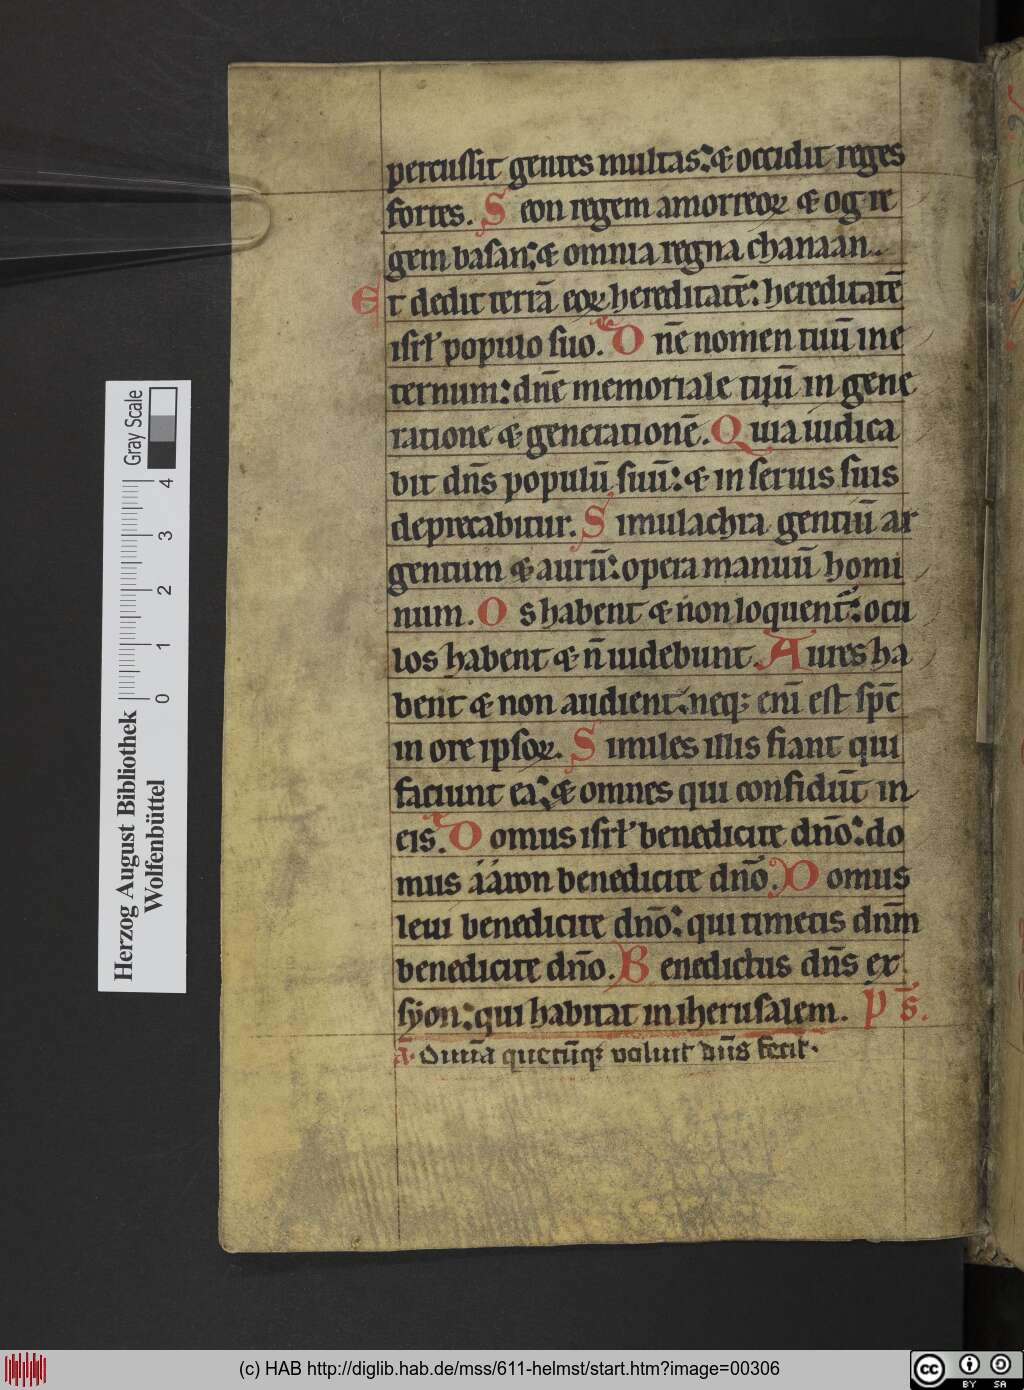 percussit gentes multas: & occidit reges
fortes. Seon regem amorreoꝝ & og re
gem basan: & omnia regna chanaan.
Et dedit terrā eoꝝ hereditatē: hereditatē
isrł populo suo. Dn̄e nomen tuū in e
ternum: dn̄e memoriale tuū in gene
ratione & generationē. Quia iudica
bit dn̄s populū suū: & in seruis suis
deprecabitur. Simulachra gentiū ar
gentum & aurū: opera manuū homi
num. Os habent & non loquent᷑: ocu
los habent & n̄ uidebunt. Aures ha
bent & non audient: neqꝫ eni᷑ est sp̄c
in ore ipsoꝝ. Similes illis fiant qui
faciunt ea: & omnes qui confidūt in
eis. Domus isrł benedicite dn̄o: do
mus áaron benedicite dn̄o. Domus
leui benedicite dn̄o: qui timetis dn̄m
benedicite dn̄o. Benedictus dn̄s ex
syon: qui habitat in iherusalem. p̄s.
a̅. Omīa quecūqꝫ voluit dn̄s fecit.
Herzog August Bibliothek
Wolfenbüttel
0 1 2 3 4
Gray Scale
(c) HAB http://diglib.hab.de/mss/611-helmst/start.htm?image=00306
cc BY SA